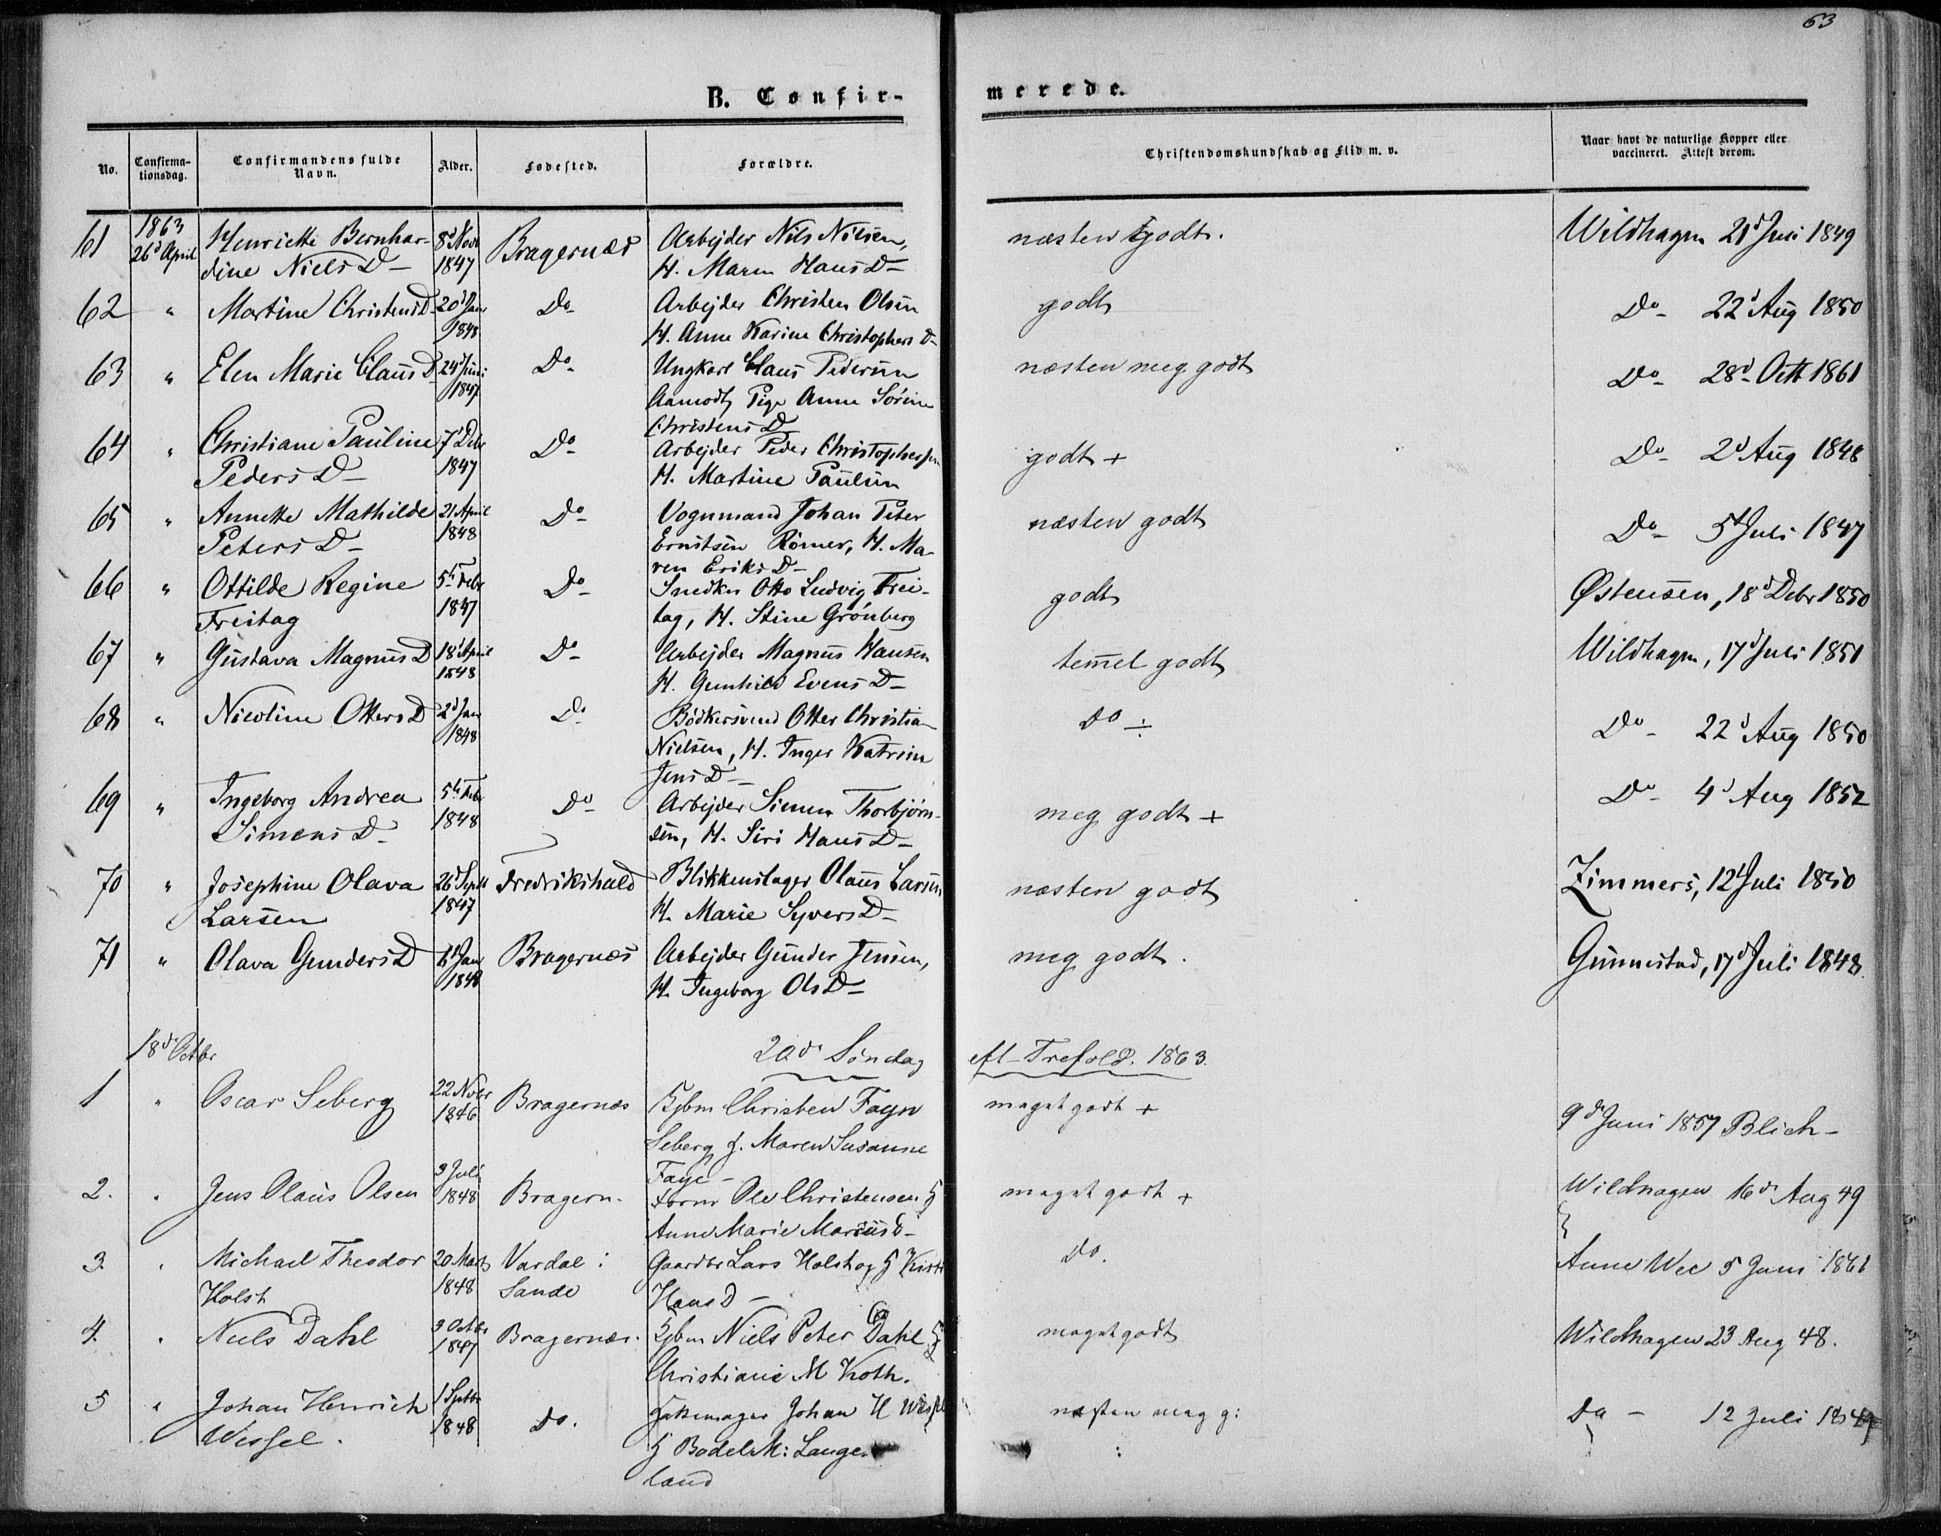 63
B. Confir-
merede.
No.
Confirma-
tionsdag.
Confirmandens fulde
Navn.
Alder.
Fødested.
Forældre.
Christendomskundskab og Flid m. v.
Naar havt de naturlige Kopper eller
vaccineret. Attest derom.
61 1863 26d April Henriette Bernhar- 8d Novr Bragernæs Arbejder Nils Nilsen, næsten godt. Wildhagen 21d Juni 1849
dine Niels D- 1847 H. Maren Hans D-
62 " Martine Christens D 20d Jan Do- Arbejder Christen Olsen godt Do- 22d Aug 1850
1848 H. Anne Karine Christophers D-
63 " Elen Marie Claus D 24d Juni Do- Ungkarl Claus Pedersen næsten meg godt Do- 28d Octb 1861
1847 Aamodt, Pige Anne Sørine
Christens D
64 " Christiane Pauline 7d Debr Do- Arbejder Peder Christophersen godt + Do- 2d Aug 1848
Peders D- 1847 H. Martine Paulsen
65 " Annette Mathilde 21 April Do- Vognmand Johan Peter næsten godt Do- 5t Juli 1847
Peters D- 1848 Ernstsen Römer, H. Ma-
ren Eriks D-
66 " Ottilde Regine 5te Febr Do- Snedker Otto Ludvig Frei- godt Østensen, 18d Debr 1850
Freitag 1847 tag, H. Stine Grönberg
67 " Gustava Magnus D 18d April Do- Arbejder Magnus Hansen temmel godt Wildhagen, 17d Juli 1851
1848 H. Gunhild Evens D-
68 " Nicoline Otters D 2d Jan Do Bödkersvend Otter Christian Do ÷ Do- 22d Aug 1850
1848 Nielsen, H. Inger Katrine
Jens D-
69 " Ingeborg Andrea 5te Febr Do- Arbejder Simen Thorbjørn- meg godt + Do- 4d Aug 1852
Simens D- 1848 sen, H. Siri Hans D-
70 " Josephine Olava 26d Septb Fredrikshald Blikkenslager Olaus Larsen næsten godt Zimmers, 12t Juli 1850
Larsen 1847 H. Marie Syvers D-
71 " Olava Gunders D Jan Bragernæs Arbejder Gunder Jensen, meg godt. Gunnestad, 17d Juli 1848.
1848 H. Ingeborg Ols D-
18d Octbr 20d Søndag eft Trefold. 1863.
1 " Oscar Seberg 22 Novbr Bragernæs Kjbm Christen Fayn meget godt + 9d Juni 1857 Blich-
1846 Seberg f. Maren Susanne
Faye-
2. " Jens Olaus Olsen 3 Juli Bragern. Ole Christensen meget godt + Wildhagen 16d Aug 49
1848 Anne Marie Marius D-
3. " Michael Theodor 20 Marts Vardal i Gaardbr Lars Holst og do. Anne Wee 5 Juni 1861
Holst 1848 Sande Hans D-
4. " Niels Dahl 3 Octbr Bragernæs. Kjbm Niels Peter Dahl meget godt Wildhagen 23 Aug 48.
1847 Christiane M Koth.
5 " Johan Henrich 1 Septbr do. Johan H Wessel næsten meg g: do - 12 Juli 1849
Wessel. 1848 Bodel M: Lange-
land